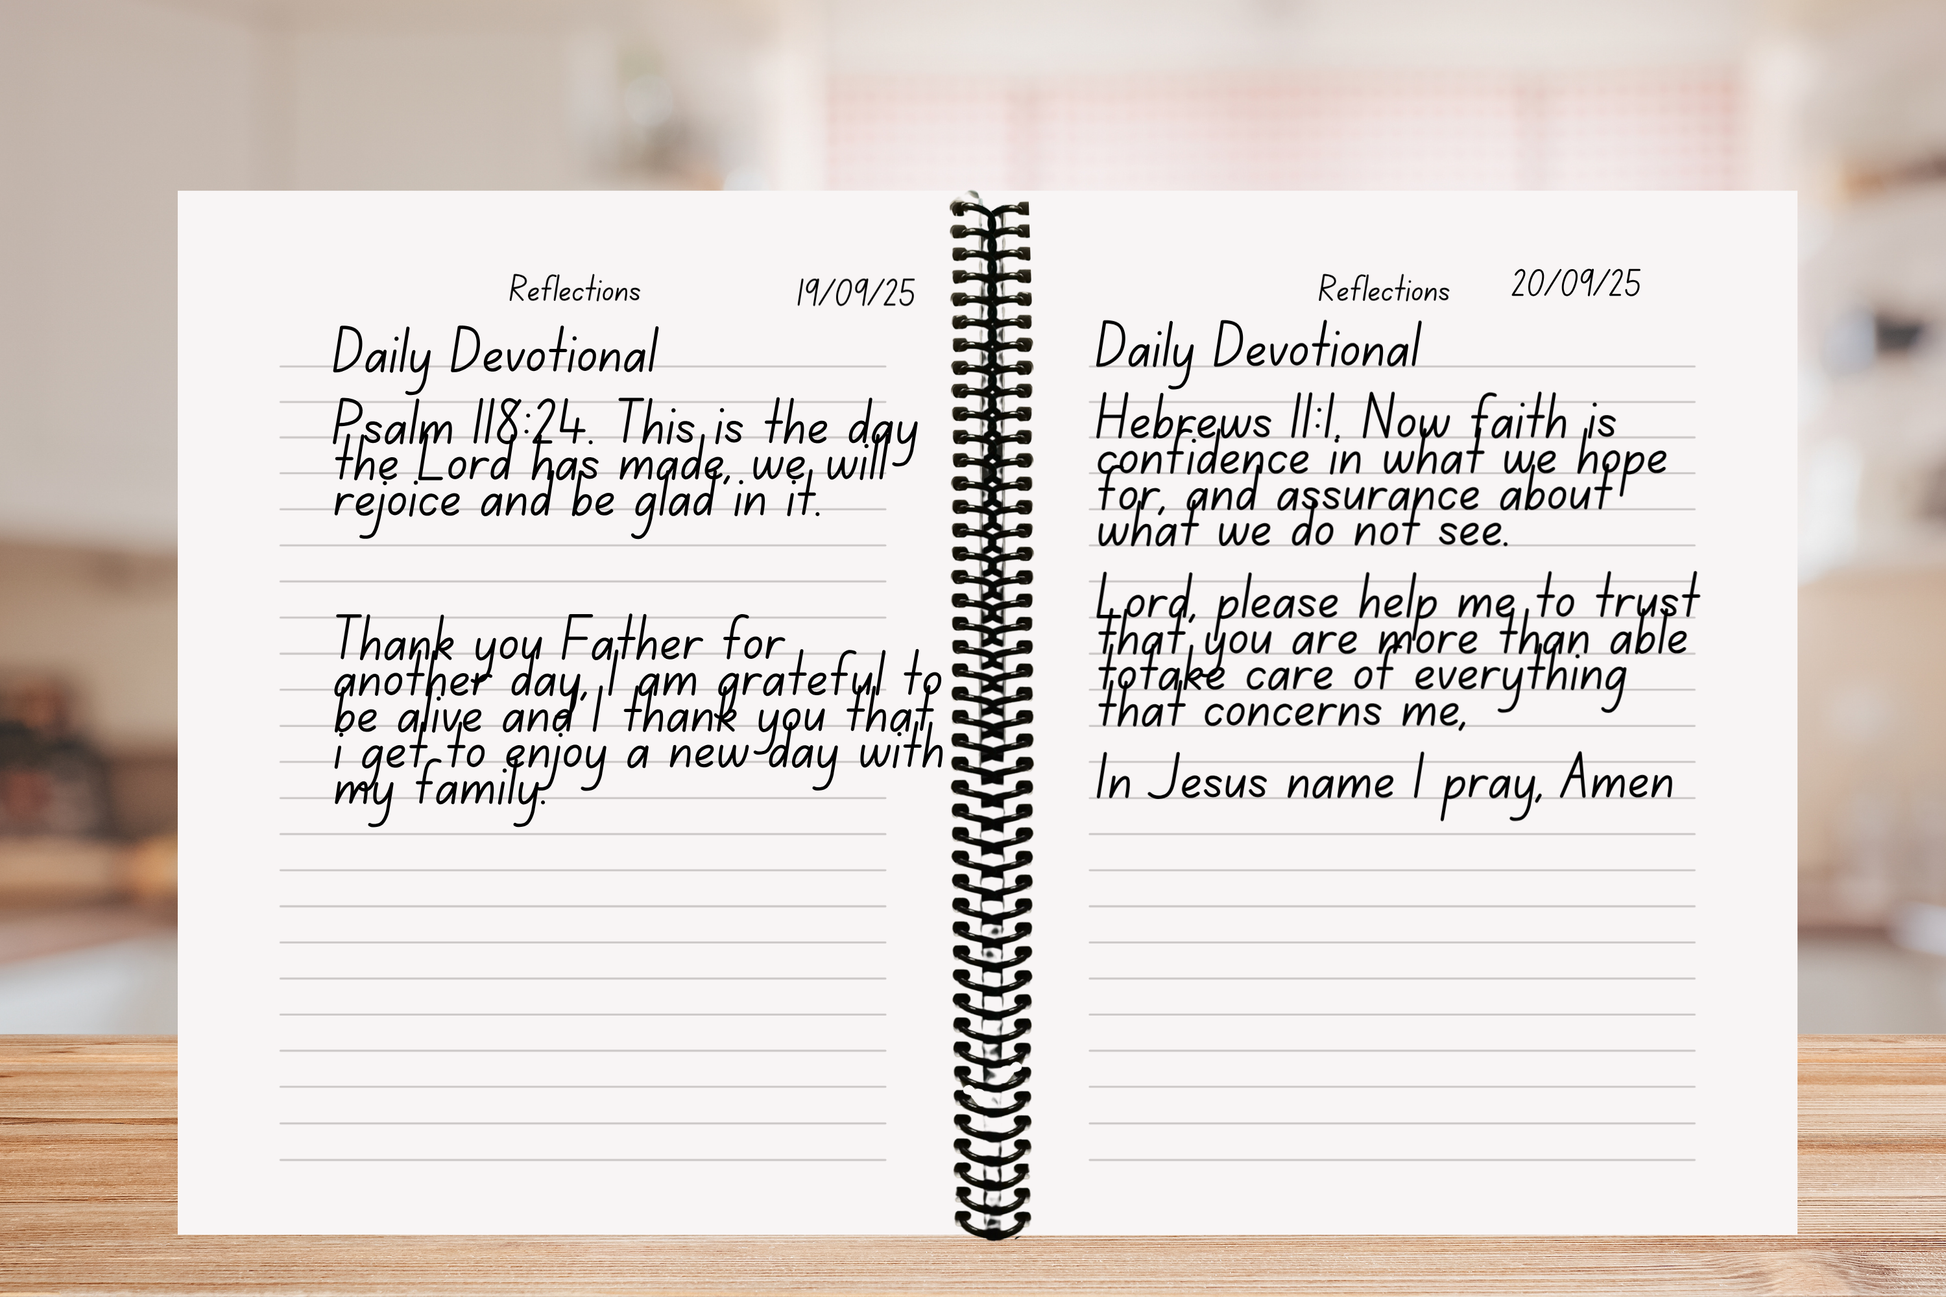 Reflections 19/09/25
Daily Devotional
Psalm 118:24. This is the day
the Lord has made, we will
rejoice and be glad in it.
Thank you Father for
another day, I am grateful to
be alive and I thank you that
i get to enjoy a new day with
my family.
Reflections 20/09/25
Daily Devotional
Hebrews 11:1. Now faith is
confidence in what we hope
for, and assurance about
what we do not see.
Lord, please help me to trust
that you are more than able
totake care of everything
that concerns me,
In Jesus name I pray, Amen